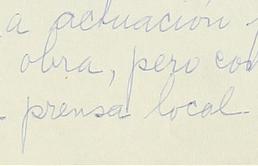 a actuación
obra, pero con
prensa local